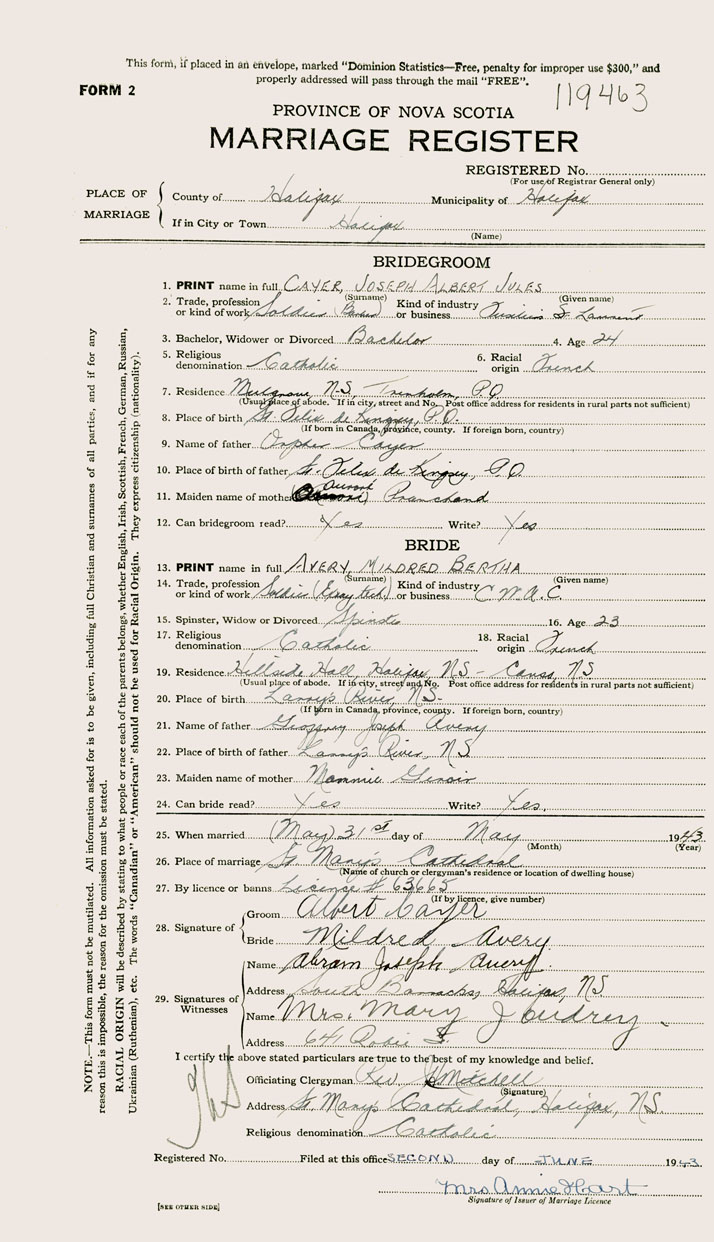 This form, if placed in an envelope, marked "Dominion Statistics—Free, penalty for improper use $300," and
properly addressed will pass through the mail "FREE".
FORM 2
119463
PROVINCE OF NOVA SCOTIA
MARRIAGE REGISTER
REGISTERED No.
(For use of Registrar General only)
PLACE OF MARRIAGE
County of Halifax Municipality of Halifax
If in City or Town Halifax
(Name)
BRIDEGROOM
1. PRINT name in full CAYER, JOSEPH ALBERT JULES
(Surname) (Given name)
2. Trade, profession or kind of work Soldier Kind of industry or business Fusiliers St Laurent
3. Bachelor, Widower or Divorced Bachelor 4. Age 24
5. Religious denomination Catholic 6. Racial origin French
7. Residence Mulgrave, N-S, Trenholm, P.Q.
(Usual place of abode. If in city, street and No. Post office address for residents in rural parts not sufficient)
8. Place of birth St. Felix de Kingsey, P.Q.
(If born in Canada, province, county. If foreign born, country)
9. Name of father Cayer
10. Place of birth of father St. Felix de Kingsey, P.Q.
11. Maiden name of mother
12. Can bridegroom read? Yes Write? Yes
BRIDE
13. PRINT name in full AVERY, MILDRED BERTHA
(Surname) (Given name)
14. Trade, profession or kind of work Soldier Kind of industry or business C.W.A.C.
15. Spinster, Widow or Divorced Spinster 16. Age 23
17. Religious denomination Catholic 18. Racial origin French
19. Residence Hillside Hall, Halifax, NS - Canso, NS
(Usual place of abode. If in city, street and No. Post office address for residents in rural parts not sufficient)
20. Place of birth Larry's River, N.S.
(If born in Canada, province, county. If foreign born, country)
21. Name of father Geoffrey Joseph Avery
22. Place of birth of father Larry's River, N.S
23. Maiden name of mother Mammie Giroir
24. Can bride read? Yes Write? Yes.
25. When married (May) 31st day of May 1943
(Month) (Year)
26. Place of marriage St Mary's Cathedral
(Name of church or clergyman's residence or location of dwelling house)
27. By licence or banns Licence # 63665
(If by licence, give number)
28. Signature of
Groom Albert Cayer
Bride Mildred Avery
29. Signatures of Witnesses
Name Abram Joseph Avery
Address South Barracks, Halifax, NS
Name Mrs. Mary J
Address 641 Robie St
I certify the above stated particulars are true to the best of my knowledge and belief.
Officiating Clergyman Rev. Mitchell
(Signature)
Address St. Mary's Cathedral, Halifax, N.S.
Religious denomination Catholic
Registered No. Filed at this office SECOND day of JUNE 1943
Mrs Annie Hart
Signature of Issuer of Marriage Licence
[SEE OTHER SIDE]
NOTE.—This form must not be mutilated. All information asked for is to be given, including full Christian and surnames of all parties, and if for any
reason this is impossible, the reason for the omission must be stated.
RACIAL ORIGIN will be described by stating to what people or race each of the parents belongs, whether English, Irish, Scottish, French, German, Russian,
Ukrainian (Ruthenian), etc. The words "Canadian" or "American" should not be used for Racial Origin. They express citizenship (nationality).